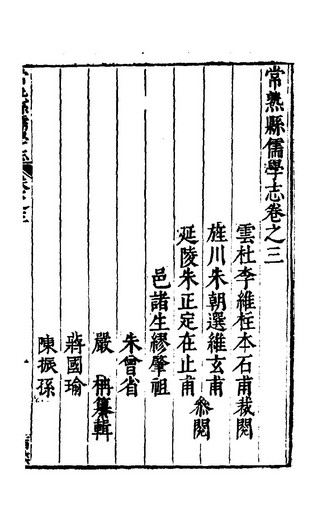 常熟縣儒學志卷之三
雲杜李維柱本石甫裁閱
旌川朱朝選維玄甫
參閱
延陵朱正定在止甫
邑諸生繆肇祖
朱曾省
嚴柟纂輯
蔣國瑜
陳振孫